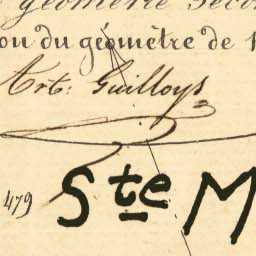 géométrie Secon
ou du géomètre de 1
Art: Guilloys
479 Ste M